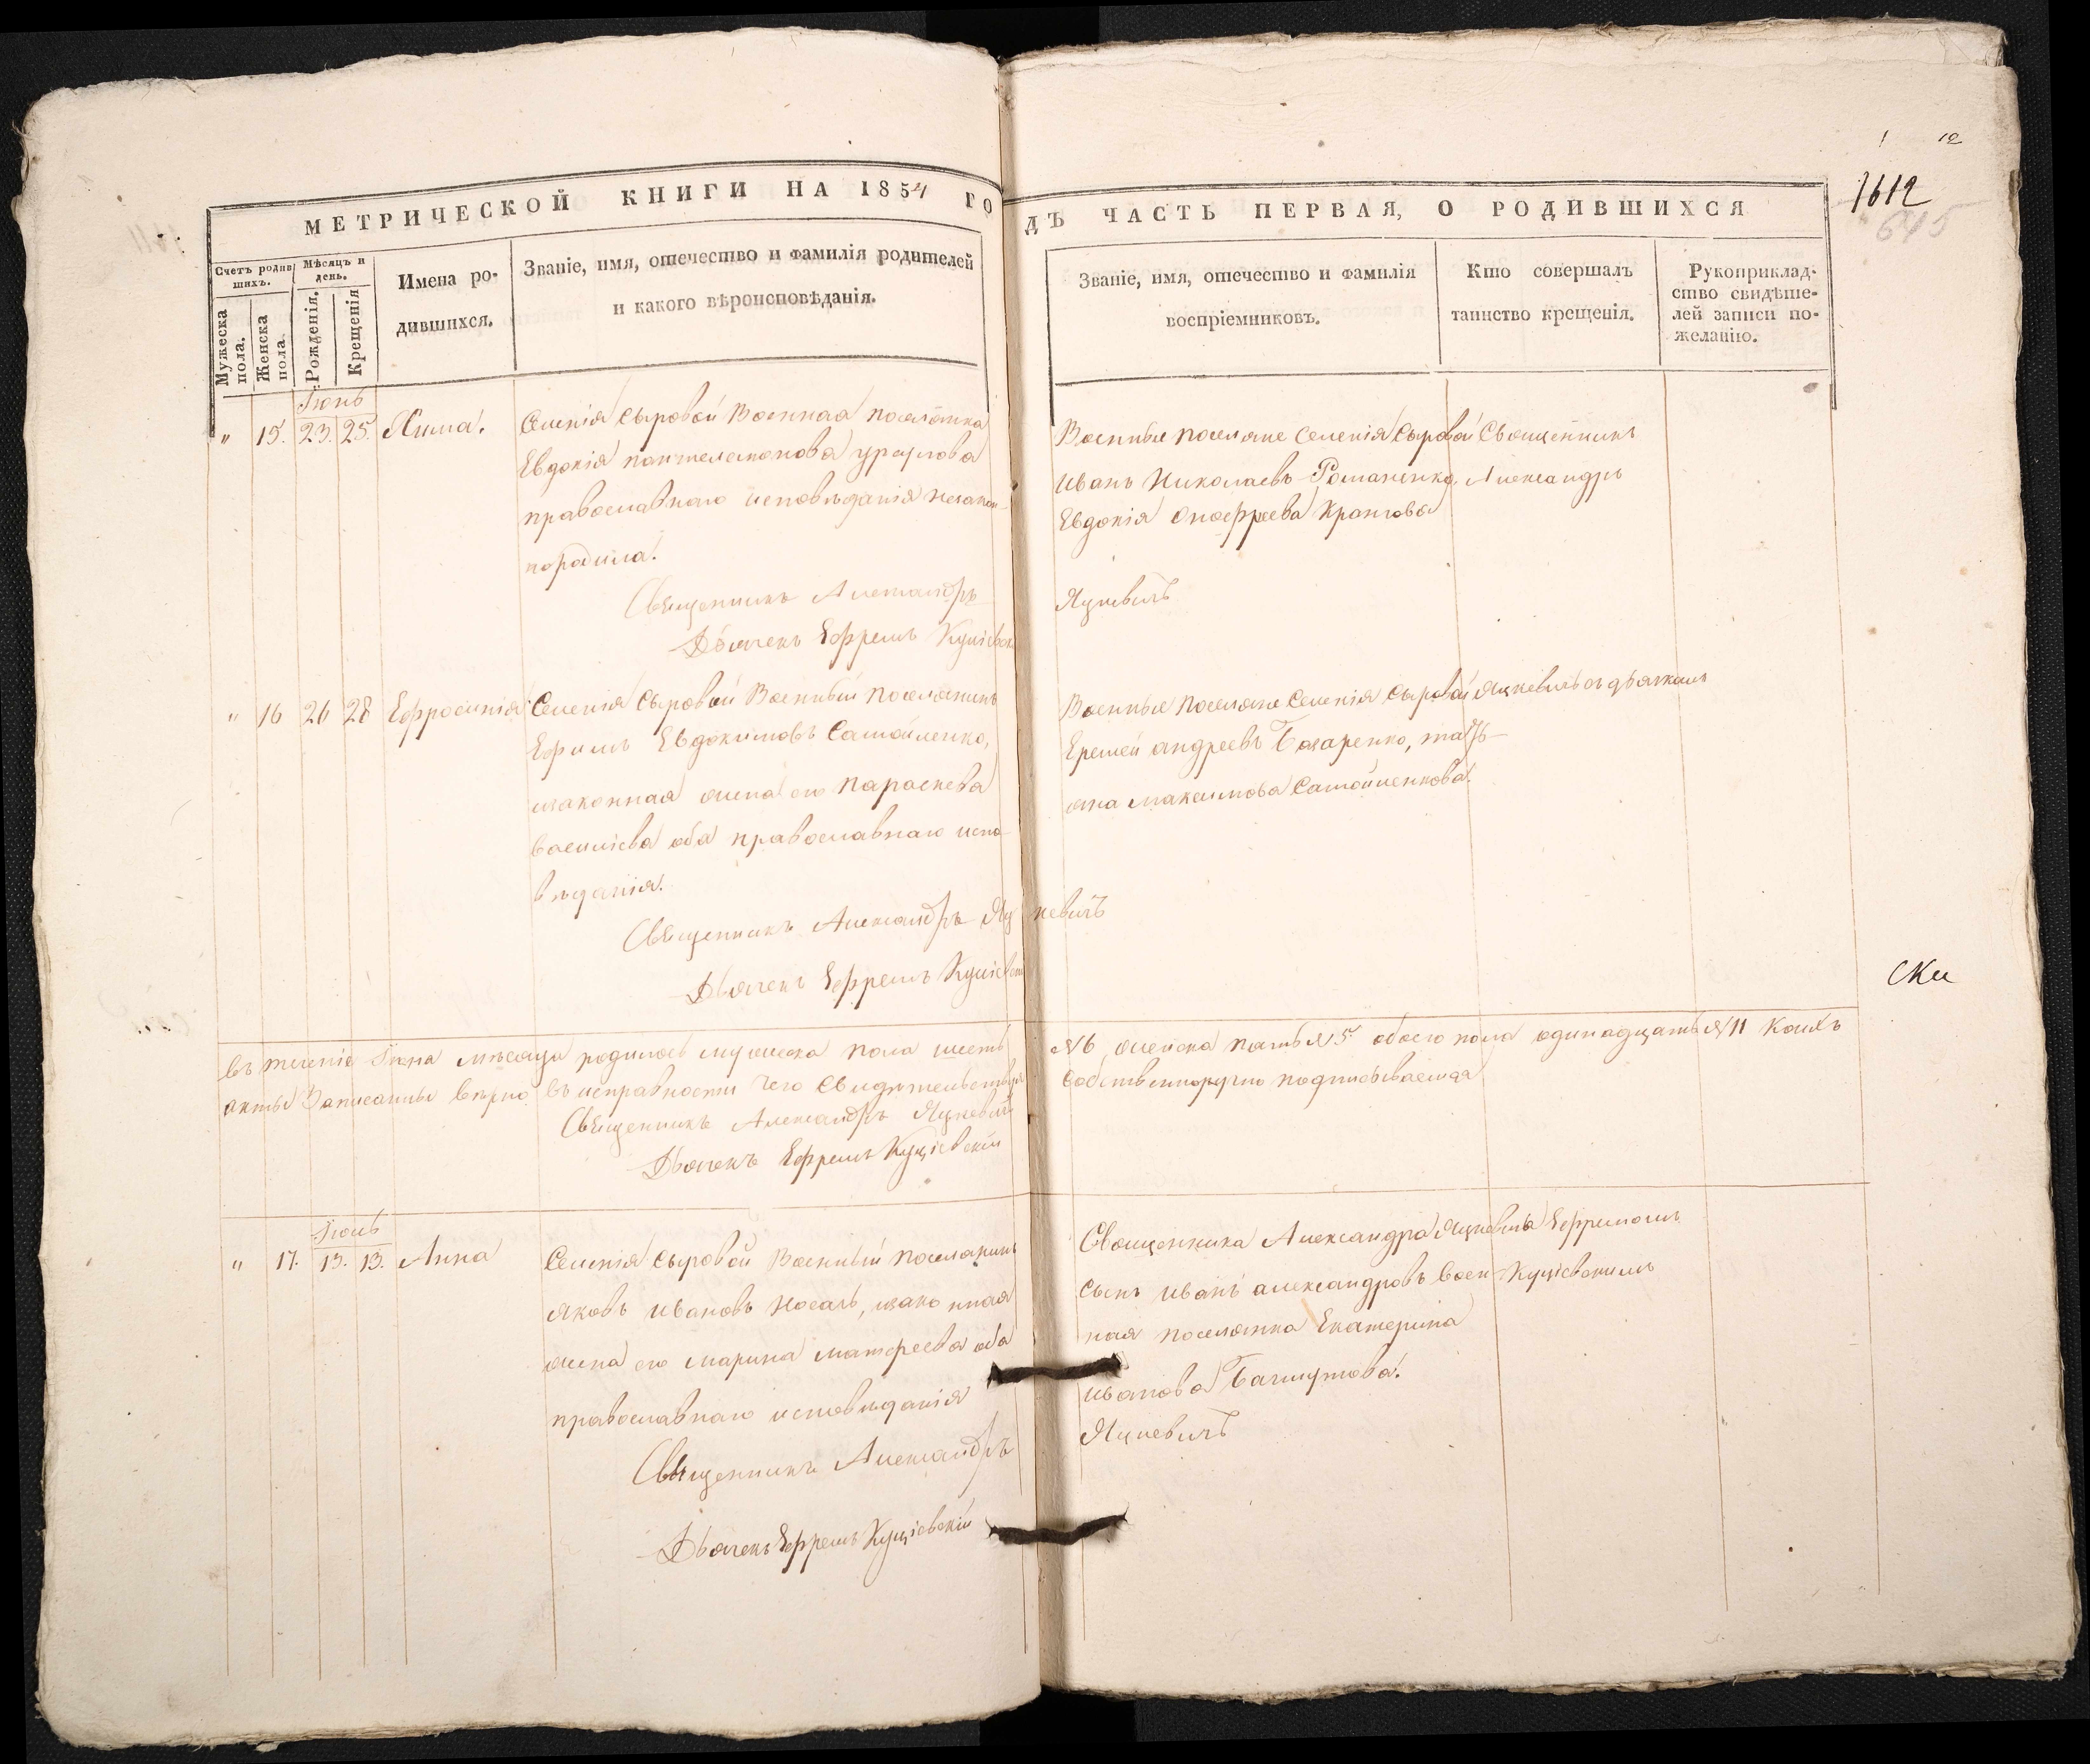 12
1612
645
МЕТРИЧЕСКОЙ КНИГИ НА 1854 ГО
ДЪ ЧАСТЬ ПЕРВАЯ, О РОДИВШИХСЯ
Счетъ родив
шихъ.
Мужеска
пола.
Женска
пола.
Мѣсяцъ и
день.
Рожденія.
Крещенія
Имена ро-
дившихся.
Званіе, имя, отечество и фамилія родителей
и какого вѣроисповѣданія.
Званіе, имя, отечество и фамилія
воспріемниковъ.
Кто совершалъ
таинство крещенія.
Рукоприклад-
ство свидѣте-
лей записи по-
желанію.
Іюнь
" 15. 23. 25.
Селенія Сыровой Военная поселянка
Евдокія пантелемонова
православнаго исповѣданія незакон-
породила.
Священникъ Александръ
Дьячекъ Ефремъ
Военные поселяне Селенія Сыровой
Иванъ Николаевъ Романенко,
Евдокія онофреева
Яцкевичъ
Священникъ
Александръ
" 16 26 28 Ефросинія
Селенія Сыровой Военный поселянинъ
Ефимъ Евдокимовъ Самойленко,
законная жена его Параскева
васильева оба православнаго испо-
вѣданія.
Священникъ Александръ Яц
кевичъ
Дьячекъ Ефремъ
Военные поселяне Селенія Сыровой
Еремей андреевъ, татъ-
яна максимова Самойленкова.
Яцкевичъ съ дьячкомъ
ски
въ теченіе Іюня мѣсяца родилось мужеска пола шесть
№ 6, женска пять № 5 обоего пола одинадцать № 11 коихъ
акты Записанны вѣрно въ исправности чего Свидѣтельствуя
Собственноручно подписываемся
Священникъ Александръ Яцкевичъ
Дьячекъ Ефремъ Куціевскій
Іюль
" 17. 13. 13. Анна
Селенія Сыровой Военный поселянинъ
яковъ ивановъ носачъ, законная
жена его марина матфеева оба
православнаго исповѣданія
Священникъ Александръ
Дьячекъ Ефремъ Куціевскій
Священника Александра Яцкевича
Сынъ иванъ александровъ Воен-
ная поселянка Екатерина
иванова
Яцкевичъ
Ефремомъ
Куціевскимъ